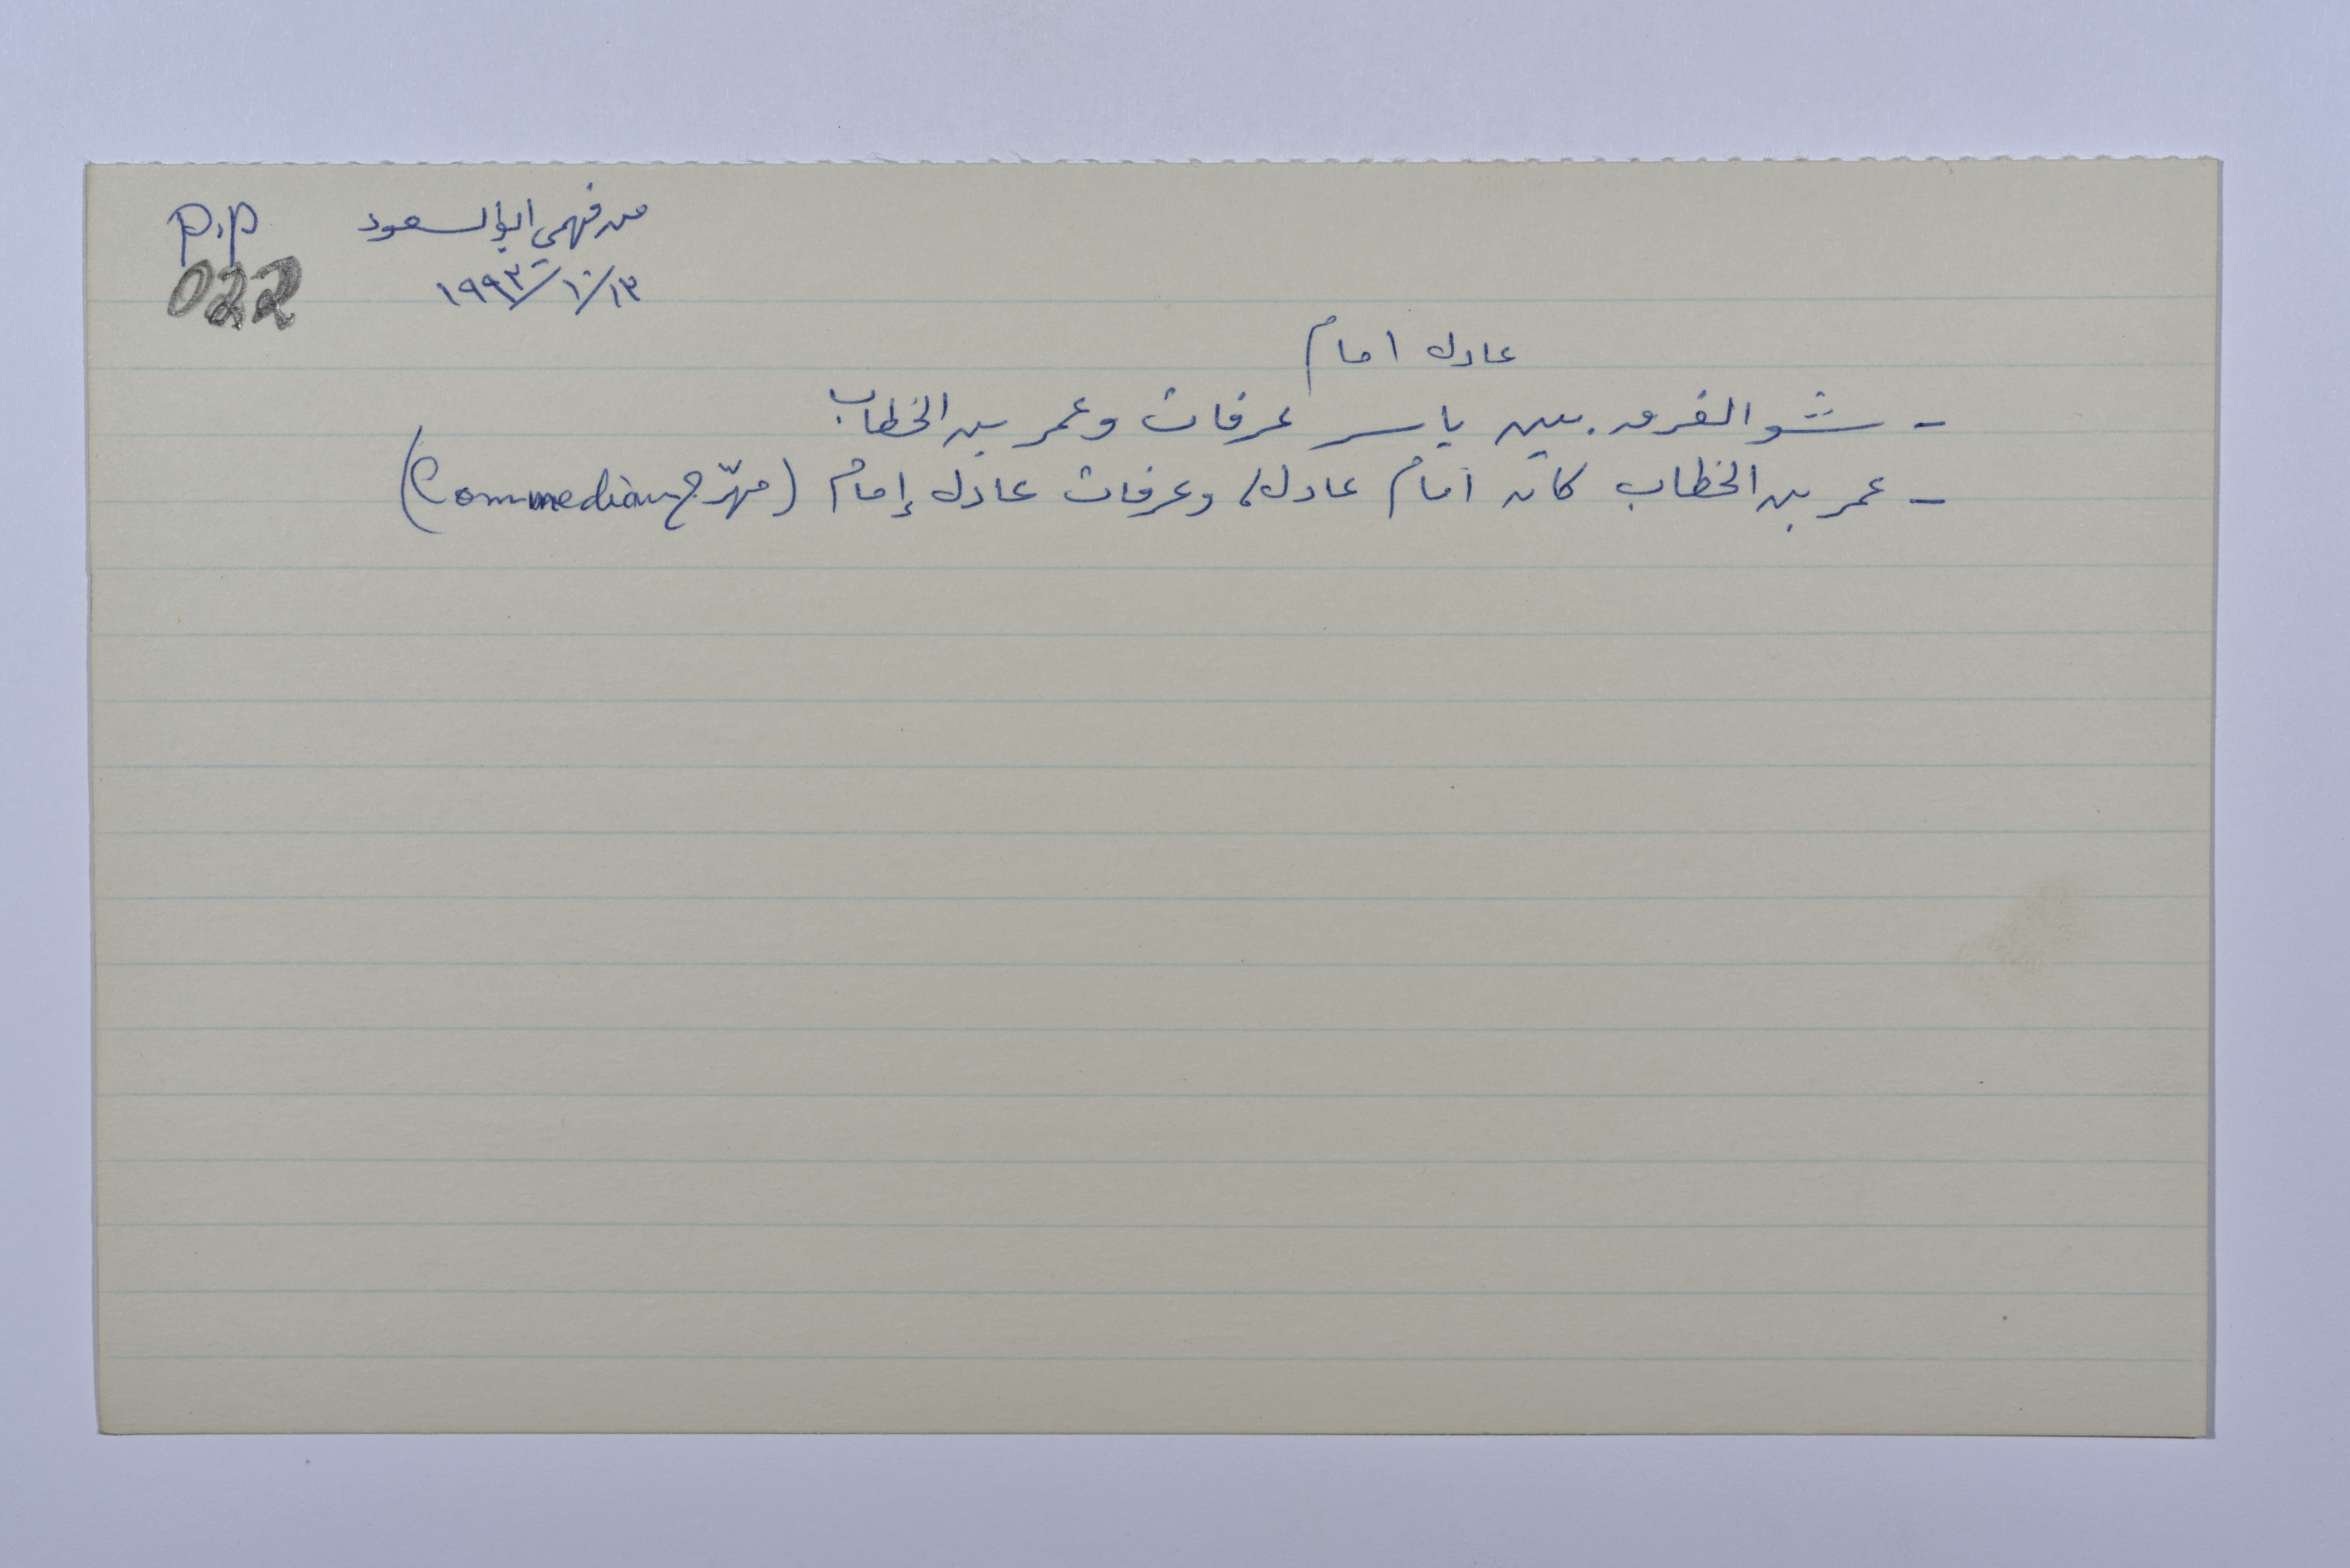 من فهمي ابو السعود
P.P
١٩٩٣/١٠/١٣
022
عادل امام
- شو الفرق بين ياسر عرفات وعمر بن الخطاب
- عمر بن الخطاب كان امام عادل، وعرفات عادل إمام (مهرّج Commedian)